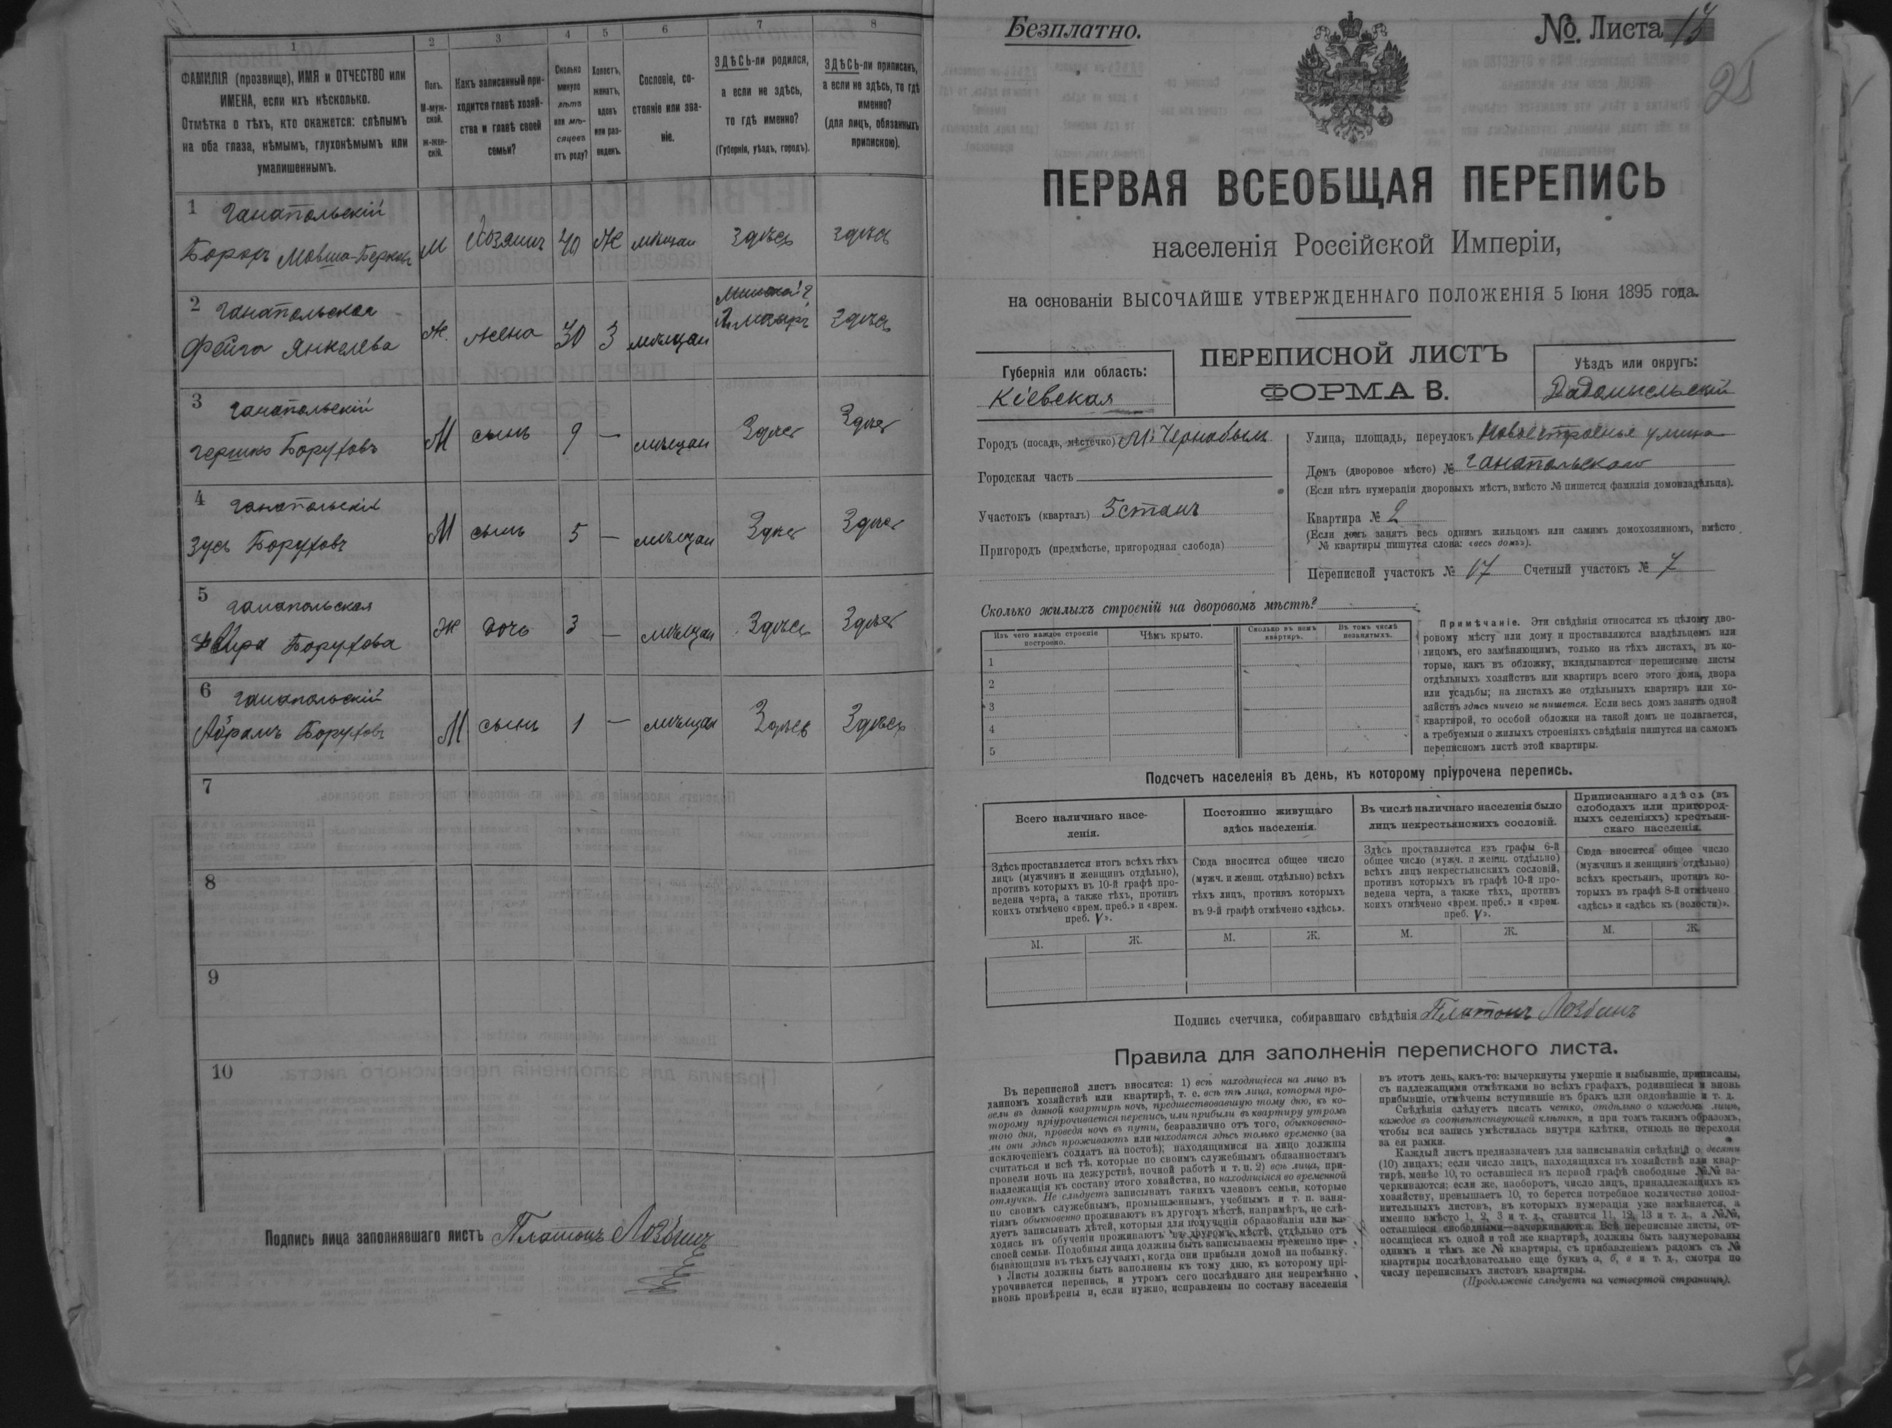 1 2 3 4 5 6 7 8
ФАМИЛІЯ (прозвище), ИМЯ и ОТЧЕСТВО или
ИМЕНА, если ихъ нѣсколько.
Отмѣтка о тѣхъ, кто окажется: слѣпымъ
на оба глаза, нѣмымъ, глухонѣмымъ или
умалишеннымъ.
Полъ.
М-муж-
ской.
ж-жен-
скій.
Какъ записанный при-
ходится главѣ хозяй-
ства и главѣ своей
семьи?
Сколько
минуло
лѣтъ
или мѣ-
сяцевъ
отъ роду?
Холостъ,
женатъ,
вдовъ
или раз-
веденъ.
Сословіе, со-
стояніе или зва-
ніе.
ЗДѢСЬ-ли родился,
а если не здѣсь,
то гдѣ именно?
(Губернія, уѣздъ, городъ).
ЗДѢСЬ-ли приписанъ,
а если не здѣсь, то гдѣ
именно?
(для лицъ, обязанныхъ
припискою).
1 Ганапольскій
Борохъ Мовша-Берковъ М Хозяинъ 40 Ж мѣщан Здѣсь Здѣсь
2 Ганапольская
Фейга Янкелева Ж. жена 30 З мѣщан Здѣсь
3 Ганапольскій
Гершко Боруховъ М сынъ 9 — мѣщан Здѣсь Здѣсь
4 Ганапольскій
Зусь Боруховъ М сынъ 5 — мѣщан Здѣсь Здѣсь
5 Ганапольская
Борухова Ж дочь 3 — мѣщан Здѣсь Здѣсь
6 Ганапольскій
Абрамъ Боруховъ М сынъ 1 — мѣщан Здѣсь Здѣсь
7
8
9
10
Подпись лица заполнявшаго листъ Платонъ Лозбинъ
Безплатно.
№. Листа
25
ПЕРВАЯ ВСЕОБЩАЯ ПЕРЕПИСЬ
населенія Россійской Имперіи,
на основаніи ВЫСОЧАЙШЕ УТВЕРЖДЕННАГО ПОЛОЖЕНІЯ 5 Іюня 1895 года.
Губернія или область:
Кіевская
ПЕРЕПИСНОЙ ЛИСТЪ
ФОРМА В.
Уѣздъ или округъ:
Радомысльскій
Городъ (посадъ, мѣстечко) М. Чернобыль
Городская часть
Участокъ (кварталъ) 5 станъ
Пригородъ (предмѣстье, пригородная слобода)
Улица, площадь, переулокъ Новое строенье улица
Домъ (дворовое мѣсто) № Ганапольскаго
(Если нѣтъ нумераціи дворовыхъ мѣстъ, вмѣсто № пишется фамилія домовладѣльца).
Квартира № 2
(Если домъ занятъ весь однимъ жильцомъ или самимъ домохозяиномъ, вмѣсто
№ квартиры пишутся слова: «весь домъ»).
Переписной участокъ № 17 Счетный участокъ № 7
Сколько жилыхъ строеній на дворовомъ мѣстѣ?
Изъ чего каждое строеніе
построено.
Чѣмъ крыто.
Сколько въ немъ
квартиръ.
Въ томъ числѣ
незанятыхъ.
1
2
3
4
5
Примѣчаніе. Эти свѣдѣнія относятся къ цѣлому дво-
ровому мѣсту или дому и проставляются владѣльцемъ или
лицомъ, его замѣняющимъ, только на тѣхъ листахъ, въ ко-
торые, какъ въ обложку, вкладываются переписные листы
отдѣльныхъ хозяйствъ или квартиръ всего этого дома, двора
или усадьбы; на листахъ же отдѣльныхъ квартиръ или хо-
зяйствъ здѣсь ничего не пишется. Если весь домъ занятъ одной
квартирой, то особой обложки на такой домъ не полагается,
а требуемыя о жилыхъ строеніяхъ свѣдѣнія пишутся на самомъ
переписномъ листѣ этой квартиры.
Подсчетъ населенія въ день, къ которому пріурочена перепись.
Всего наличнаго насе-
ленія.
Здѣсь проставляется итогъ всѣхъ тѣхъ
лицъ (мужчинъ и женщинъ отдѣльно),
противъ которыхъ въ 10-й графѣ про-
ведена черта, а также тѣхъ, противъ
коихъ отмѣчено «врем. преб.» и «врем.
преб. V».
Постоянно живущаго
здѣсь населенія.
Сюда вносится общее число
(мужч. и женщ. отдѣльно) всѣхъ
тѣхъ лицъ, противъ которыхъ
въ 9-й графѣ отмѣчено «здѣсь».
Въ числѣ наличнаго населенія было
лицъ некрестьянскихъ сословій.
Здѣсь проставляется изъ графы 6-й
общее число (мужч. и женщ. отдѣльно)
всѣхъ лицъ некрестьянскихъ сословій,
противъ которыхъ въ графѣ 10-й про-
ведена черта, а также тѣхъ, противъ
коихъ отмѣчено «врем. преб.» и «врем.
преб. V».
Приписаннаго здѣсь (въ
слободахъ или пригород-
ныхъ селеніяхъ) крестьян-
скаго населенія.
Сюда вносится общее число
(мужчинъ и женщинъ отдѣльно)
всѣхъ крестьянъ, противъ ко-
торыхъ въ графѣ 8-й отмѣчено
«здѣсь» и «здѣсь къ (волости)».
М. Ж. М. Ж. М. Ж. М. Ж.
Подпись счетчика, собиравшаго свѣдѣнія Платонъ Лозбинъ
Правила для заполненія переписного листа.
Въ переписной листъ вносятся: 1) всѣ находящіеся на лицо въ
данномъ хозяйствѣ или квартирѣ, т. е. всѣ тѣ лица, которыя про-
вели въ данной квартирѣ ночь, предшествовавшую тому дню, къ ко-
торому пріурочивается перепись, или прибыли въ квартиру утромъ
того дня, проведя ночь въ пути, безразлично отъ того, обыкновенно-
ли они здѣсь проживаютъ или находятся здѣсь только временно (за
исключеніемъ солдатъ на постоѣ); находящимися на лицо должны
считаться и всѣ тѣ, которые по своимъ служебнымъ обязанностямъ
провели ночь на дежурствѣ, ночной работѣ и т. п. 2) всѣ лица, при-
надлежащія къ составу этого хозяйства, но находящіяся во временной
отлучкѣ. Не слѣдуетъ записывать такихъ членовъ семьи, которые
по своимъ служебнымъ, промышленнымъ, учебнымъ и т. п. заня-
тіямъ обыкновенно проживаютъ въ другомъ мѣстѣ, напримѣръ, не слѣ-
дуетъ записывать дѣтей, которыя для полученія образованія или на-
ходясь въ обученіи проживаютъ въ другомъ мѣстѣ, отдѣльно отъ
своей семьи. Подобныя лица должны быть записываемы временно пре-
бывающими въ тѣхъ случаяхъ, когда они прибыли домой на побывку.
Листы должны быть заполнены къ тому дню, къ которому прі-
урочивается перепись, и утромъ сего послѣдняго дня непремѣнно
вновь провѣрены и, если нужно, исправлены по составу населенія
въ этотъ день, какъ-то: вычеркнуты умершіе и выбывшіе, приписаны,
съ надлежащими отмѣтками во всѣхъ графахъ, родившіеся и вновь
прибывшіе, отмѣчены вступившіе въ бракъ или овдовѣвшіе и т. д.
Свѣдѣнія слѣдуетъ писать четко, отдѣльно о каждомъ лицѣ,
каждое въ соотвѣтствующей клѣткѣ, и при томъ такимъ образомъ,
чтобы вся запись умѣстилась внутри клѣтки, отнюдь не переходя
за ея рамки.
Каждый листъ предназначенъ для записыванія свѣдѣній о десяти
(10) лицахъ; если число лицъ, находящихся въ хозяйствѣ или квар-
тирѣ, менѣе 10, то оставшіеся въ первой графѣ свободные №№ за-
черкиваются; если же, наоборотъ, число лицъ, принадлежащихъ къ
хозяйству, превышаетъ 10, то берется потребное количество допол-
нительныхъ листовъ, въ которыхъ нумерація уже измѣняется, а
именно вмѣсто 1, 2, 3 и т. д., ставится 11, 12, 13 и т. д., а №№,
оставшіеся свободными—зачеркиваются. Всѣ переписные листы, от-
носящіеся къ одной и той же квартирѣ, должны быть занумерованы
однимъ и тѣмъ же № квартиры, съ прибавленіемъ рядомъ съ №
квартиры послѣдовательно еще буквъ а, б, в и т. д., смотря по
числу переписныхъ листовъ квартиры.
(Продолженіе слѣдуетъ на четвертой страницѣ).